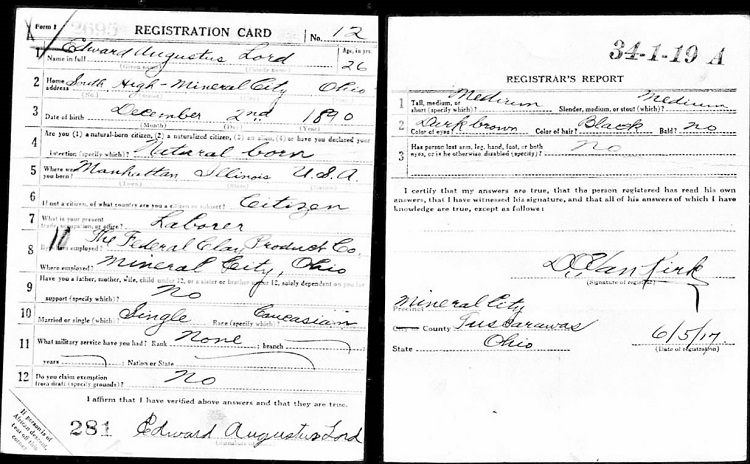 Form 1 2695 REGISTRATION CARD No. 12
1 Edward Augustus Lord Age, in yrs.
Name in full 26
2 Home address South High - Mineral City Ohio
3 Date of birth December 2nd 1890
(Month) (Day) (Year)
4 Are you (1) a natural-born citizen, (2) a naturalized citizen, (3) an alien, (4) or have you declared your
intention (specify which)? Natural born
5 Where were you born? Manhattan Illinois U.S.A.
(Town) (State)
6 If not a citizen, of what country are you a citizen or subject? Citizen
7 What is your present trade, occupation, or office? Laborer
8 By whom employed? The Federal Clay Product Co.
Where employed? Mineral City, Ohio
9 Have you a father, mother, wife, child under 12, or a sister or brother under 12, solely dependent on you for
support (specify which)? No
10 Married or single (which)? Single Race (specify which)? Caucasian
11 What military service have you had? Rank None ; branch
years ; Nation or State
12 Do you claim exemption from draft (specify grounds)? No
I affirm that I have verified above answers and that they are true.
If person is of African descent, tear off this corner
281 Edward Augustus Lord
34-1-19 A
REGISTRAR'S REPORT
1 Tall, medium, or short (specify which)? Medium Slender, medium, or stout (which)? Medium
2 Color of eyes? Dark brown Color of hair? Black Bald? No
3 Has person lost arm, leg, hand, foot, or both eyes, or is he otherwise disabled (specify)? No
I certify that my answers are true, that the person registered has read his own
answers, that I have witnessed his signature, and that all of his answers of which I have
knowledge are true, except as follows:
Van Kirk
(Signature of registrar)
Precinct Mineral City
County Tuscarawas
State Ohio 6/5/17.
(Date of registration)